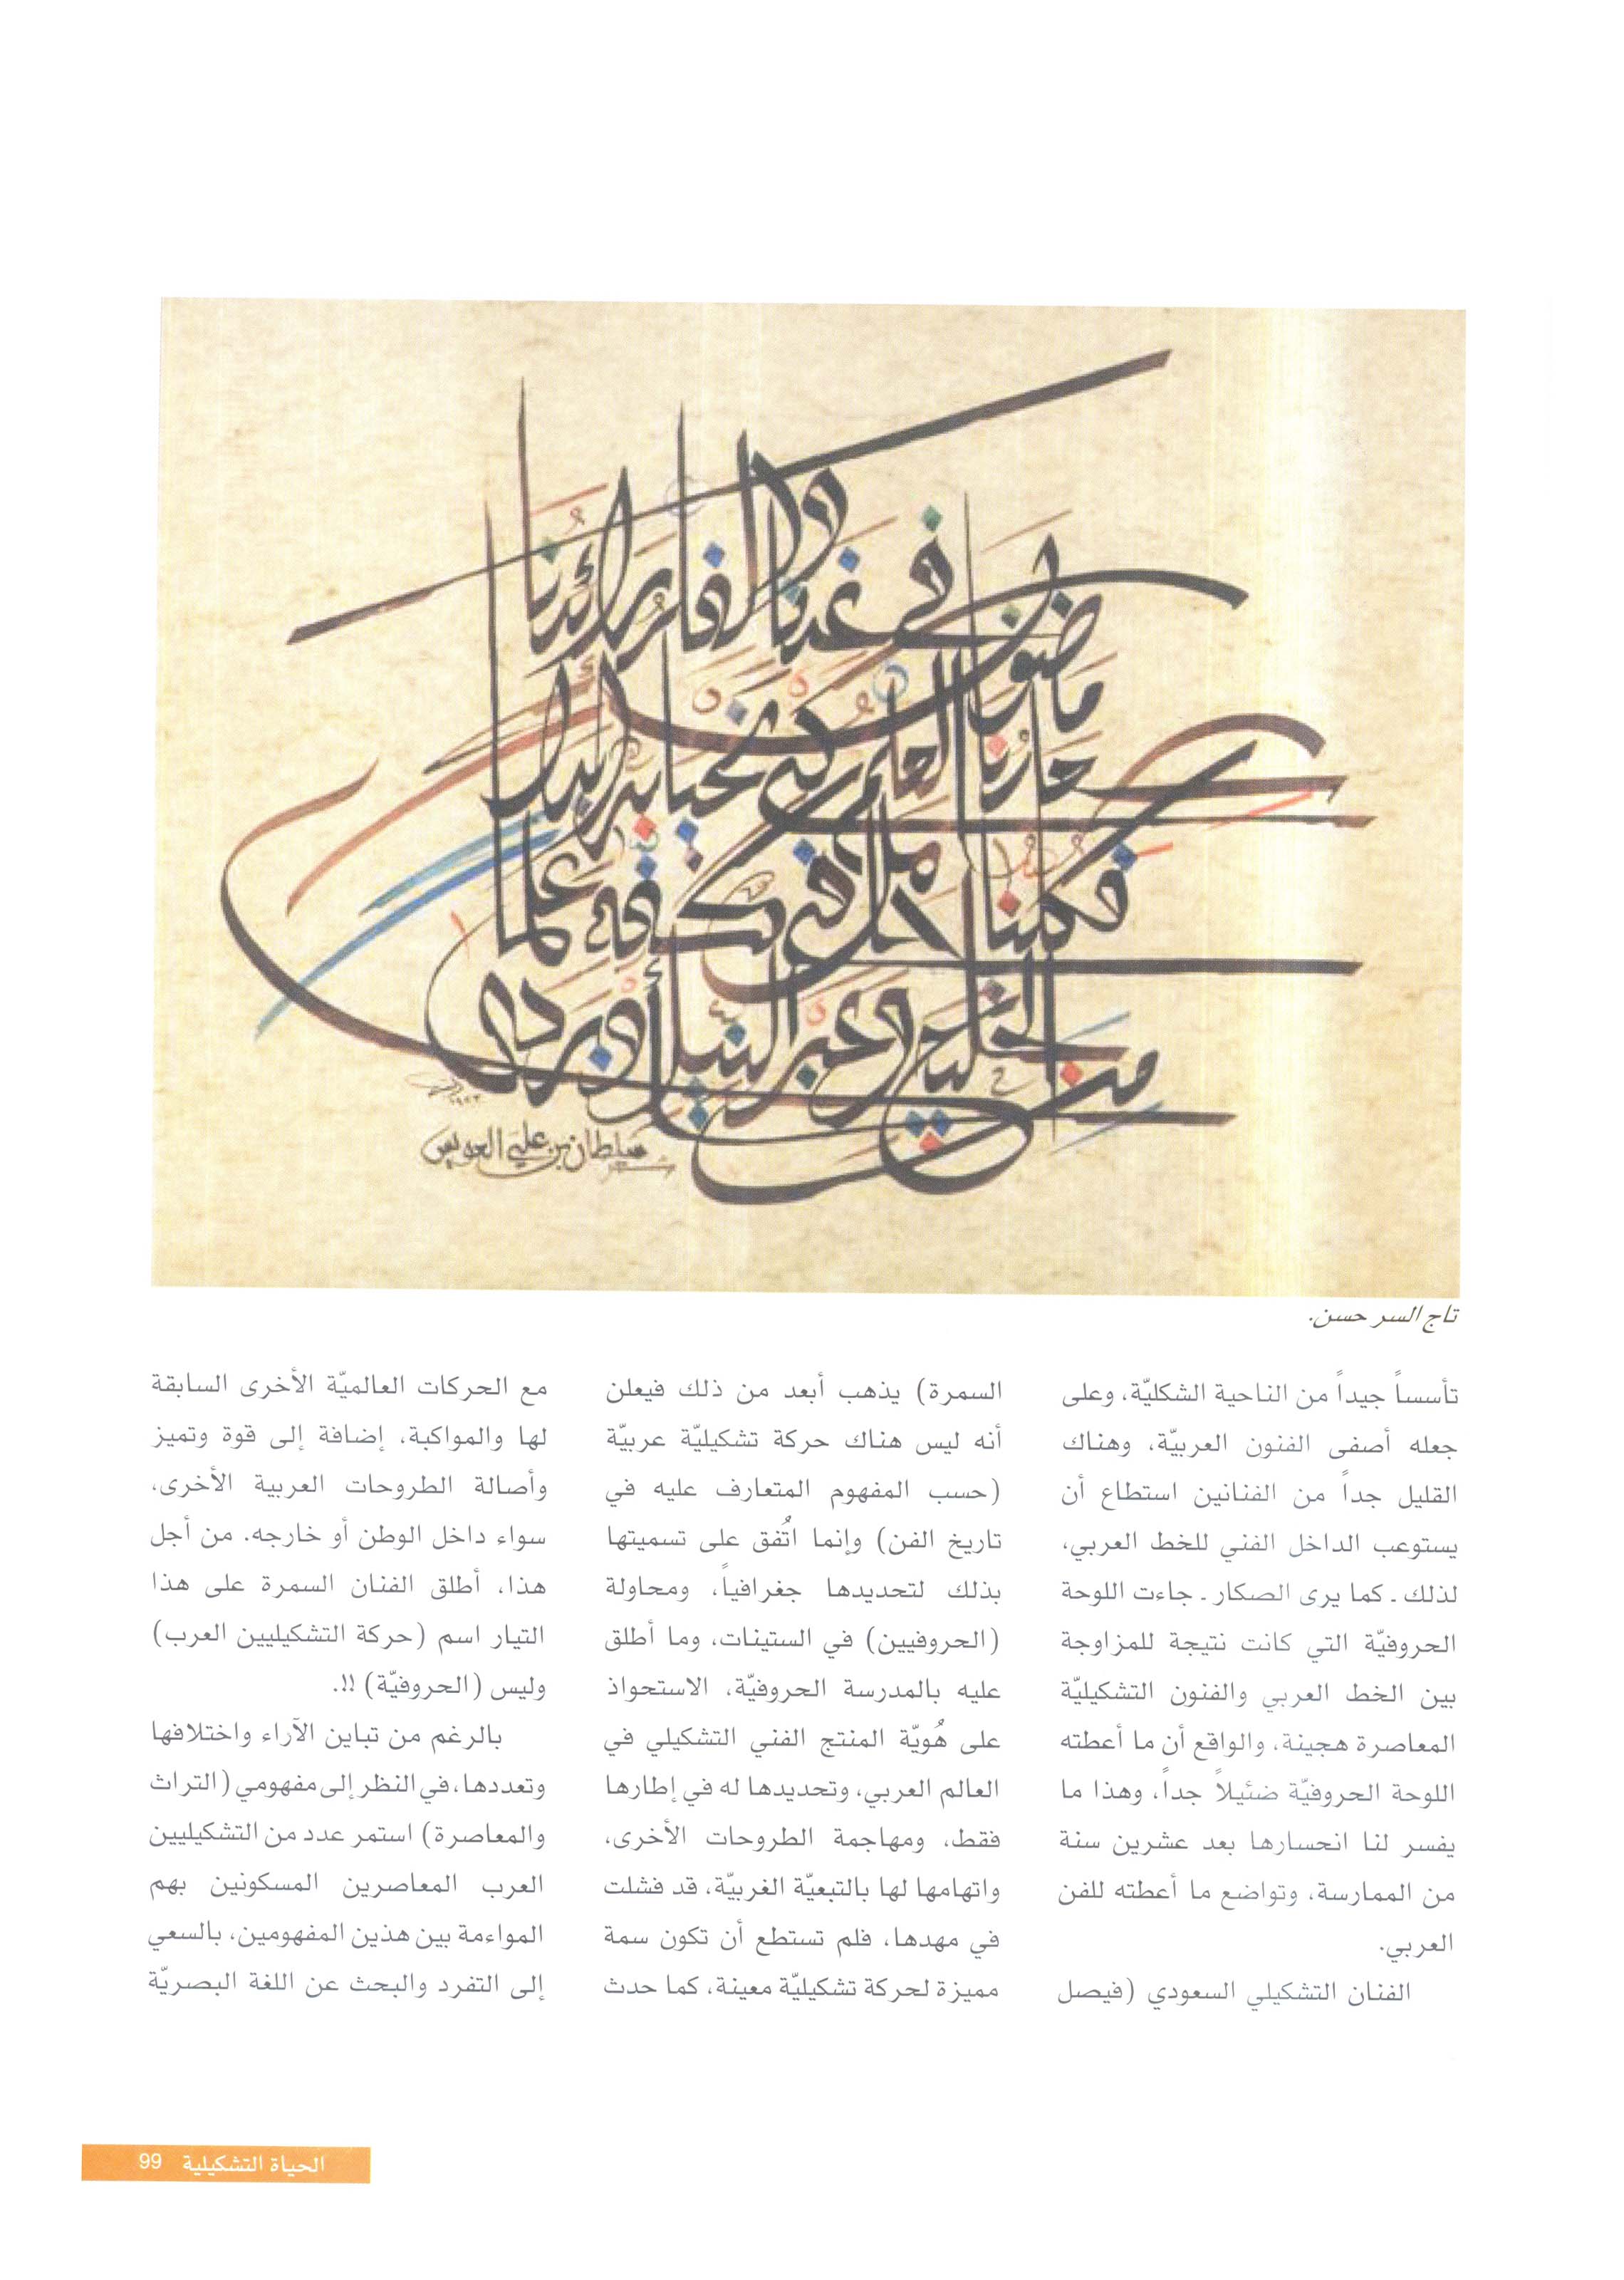 سلطان بن علي العويس
تاج السر حسن.
تأسساً جيداً من الناحية الشكليّة، وعلى
جعله أصفى الفنون العربيّة، وهناك
القليل جداً من الفنانين استطاع أن
يستوعب الداخل الفني للخط العربي،
لذلك ـ كما يرى الصكار ـ جاءت اللوحة
الحروفيّة التي كانت نتيجة للمزاوجة
بين الخط العربي والفنون التشكيليّة
المعاصرة هجينة، والواقع أن ما أعطته
اللوحة الحروفيّة ضئيلاً جداً، وهذا ما
يفسر لنا انحسارها بعد عشرين سنة
من الممارسة، وتواضع ما أعطته للفن
العربي.
الفنان التشكيلي السعودي (فيصل
السمرة) يذهب أبعد من ذلك فيعلن
أنه ليس هناك حركة تشكيليّة عربيّة
(حسب المفهوم المتعارف عليه في
تاريخ الفن) وإنما اتُفق على تسميتها
بذلك لتحديدها جغرافياً، ومحاولة
(الحروفيين) في الستينات، وما أطلق
عليه بالمدرسة الحروفيّة، الاستحواذ
على هُويّة المنتج الفني التشكيلي في
العالم العربي، وتحديدها له في إطارها
فقط، ومهاجمة الطروحات الأخرى،
واتهامها لها بالتبعيّة الغربيّة، قد فشلت
في مهدها، فلم تستطع أن تكون سمة
مميزة لحركة تشكيليّة معينة، كما حدث
مع الحركات العالميّة الأخرى السابقة
لها والمواكبة، إضافة إلى قوة وتميز
وأصالة الطروحات العربية الأخرى،
سواء داخل الوطن أو خارجه. من أجل
هذا، أطلق الفنان السمرة على هذا
التيار اسم (حركة التشكيليين العرب)
وليس (الحروفيّة) !!.
بالرغم من تباين الآراء واختلافها
وتعددها، في النظر إلى مفهومي (التراث
والمعاصرة) استمر عدد من التشكيليين
العرب المعاصرين المسكونين بهم
المواءمة بين هذين المفهومين، بالسعي
إلى التفرد والبحث عن اللغة البصريّة
الحياة التشكيلية 99